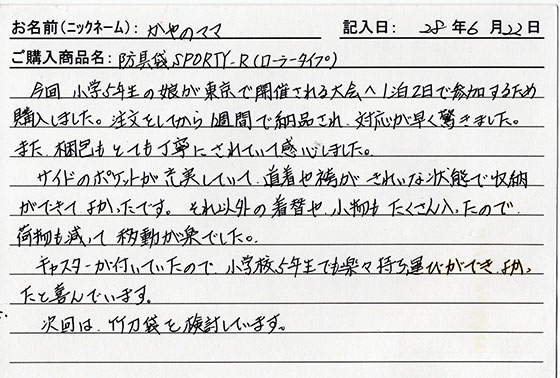 お名前(ニックネーム): かやのママ 記入日: 28年6月22日
ご購入商品名: 防具袋SPORTY-R(ローラータイプ)
今回 小学5年生の娘が東京で開催される大会へ1泊2日で参加するため
購入しました。注文をしてから1週間で納品され、対応が早く驚きました。
また、梱包もとても丁寧にされていて感心しました。
サイドのポケットが充実していて、道着や袴がきれいな状態で収納
ができてよかったです。それ以外の着替や、小物もたくさん入ったので、
荷物も減って移動が楽でした。
キャスターが付いていたので、小学校5年生でも楽々持ち運びができ、よかっ
たと喜んでいます。
次回は、竹刀袋を検討しています。